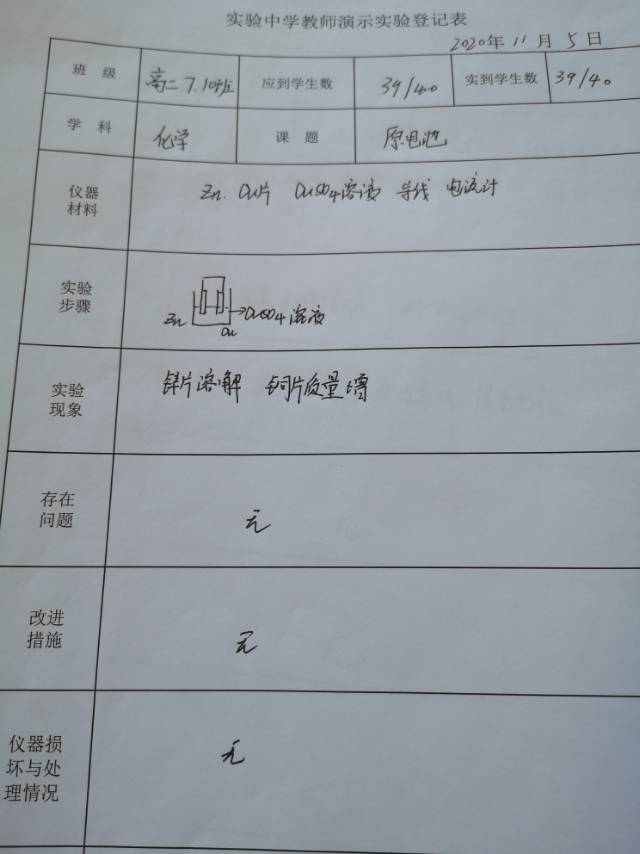 实验中学教师演示实验登记表
2020年11月5日
班 级 高二7.10班 应到学生数 39/40 实到学生数 39/40
学 科 化学 课 题 原电池
仪器
材料
Zn. Cu片 CuSO4溶液 导线 电流计
实验
步骤
Zn Cu CuSO4溶液
实验
现象
锌片溶解 铜片质量增
存在
问题
无
改进
措施
无
仪器损
坏与处
理情况
无